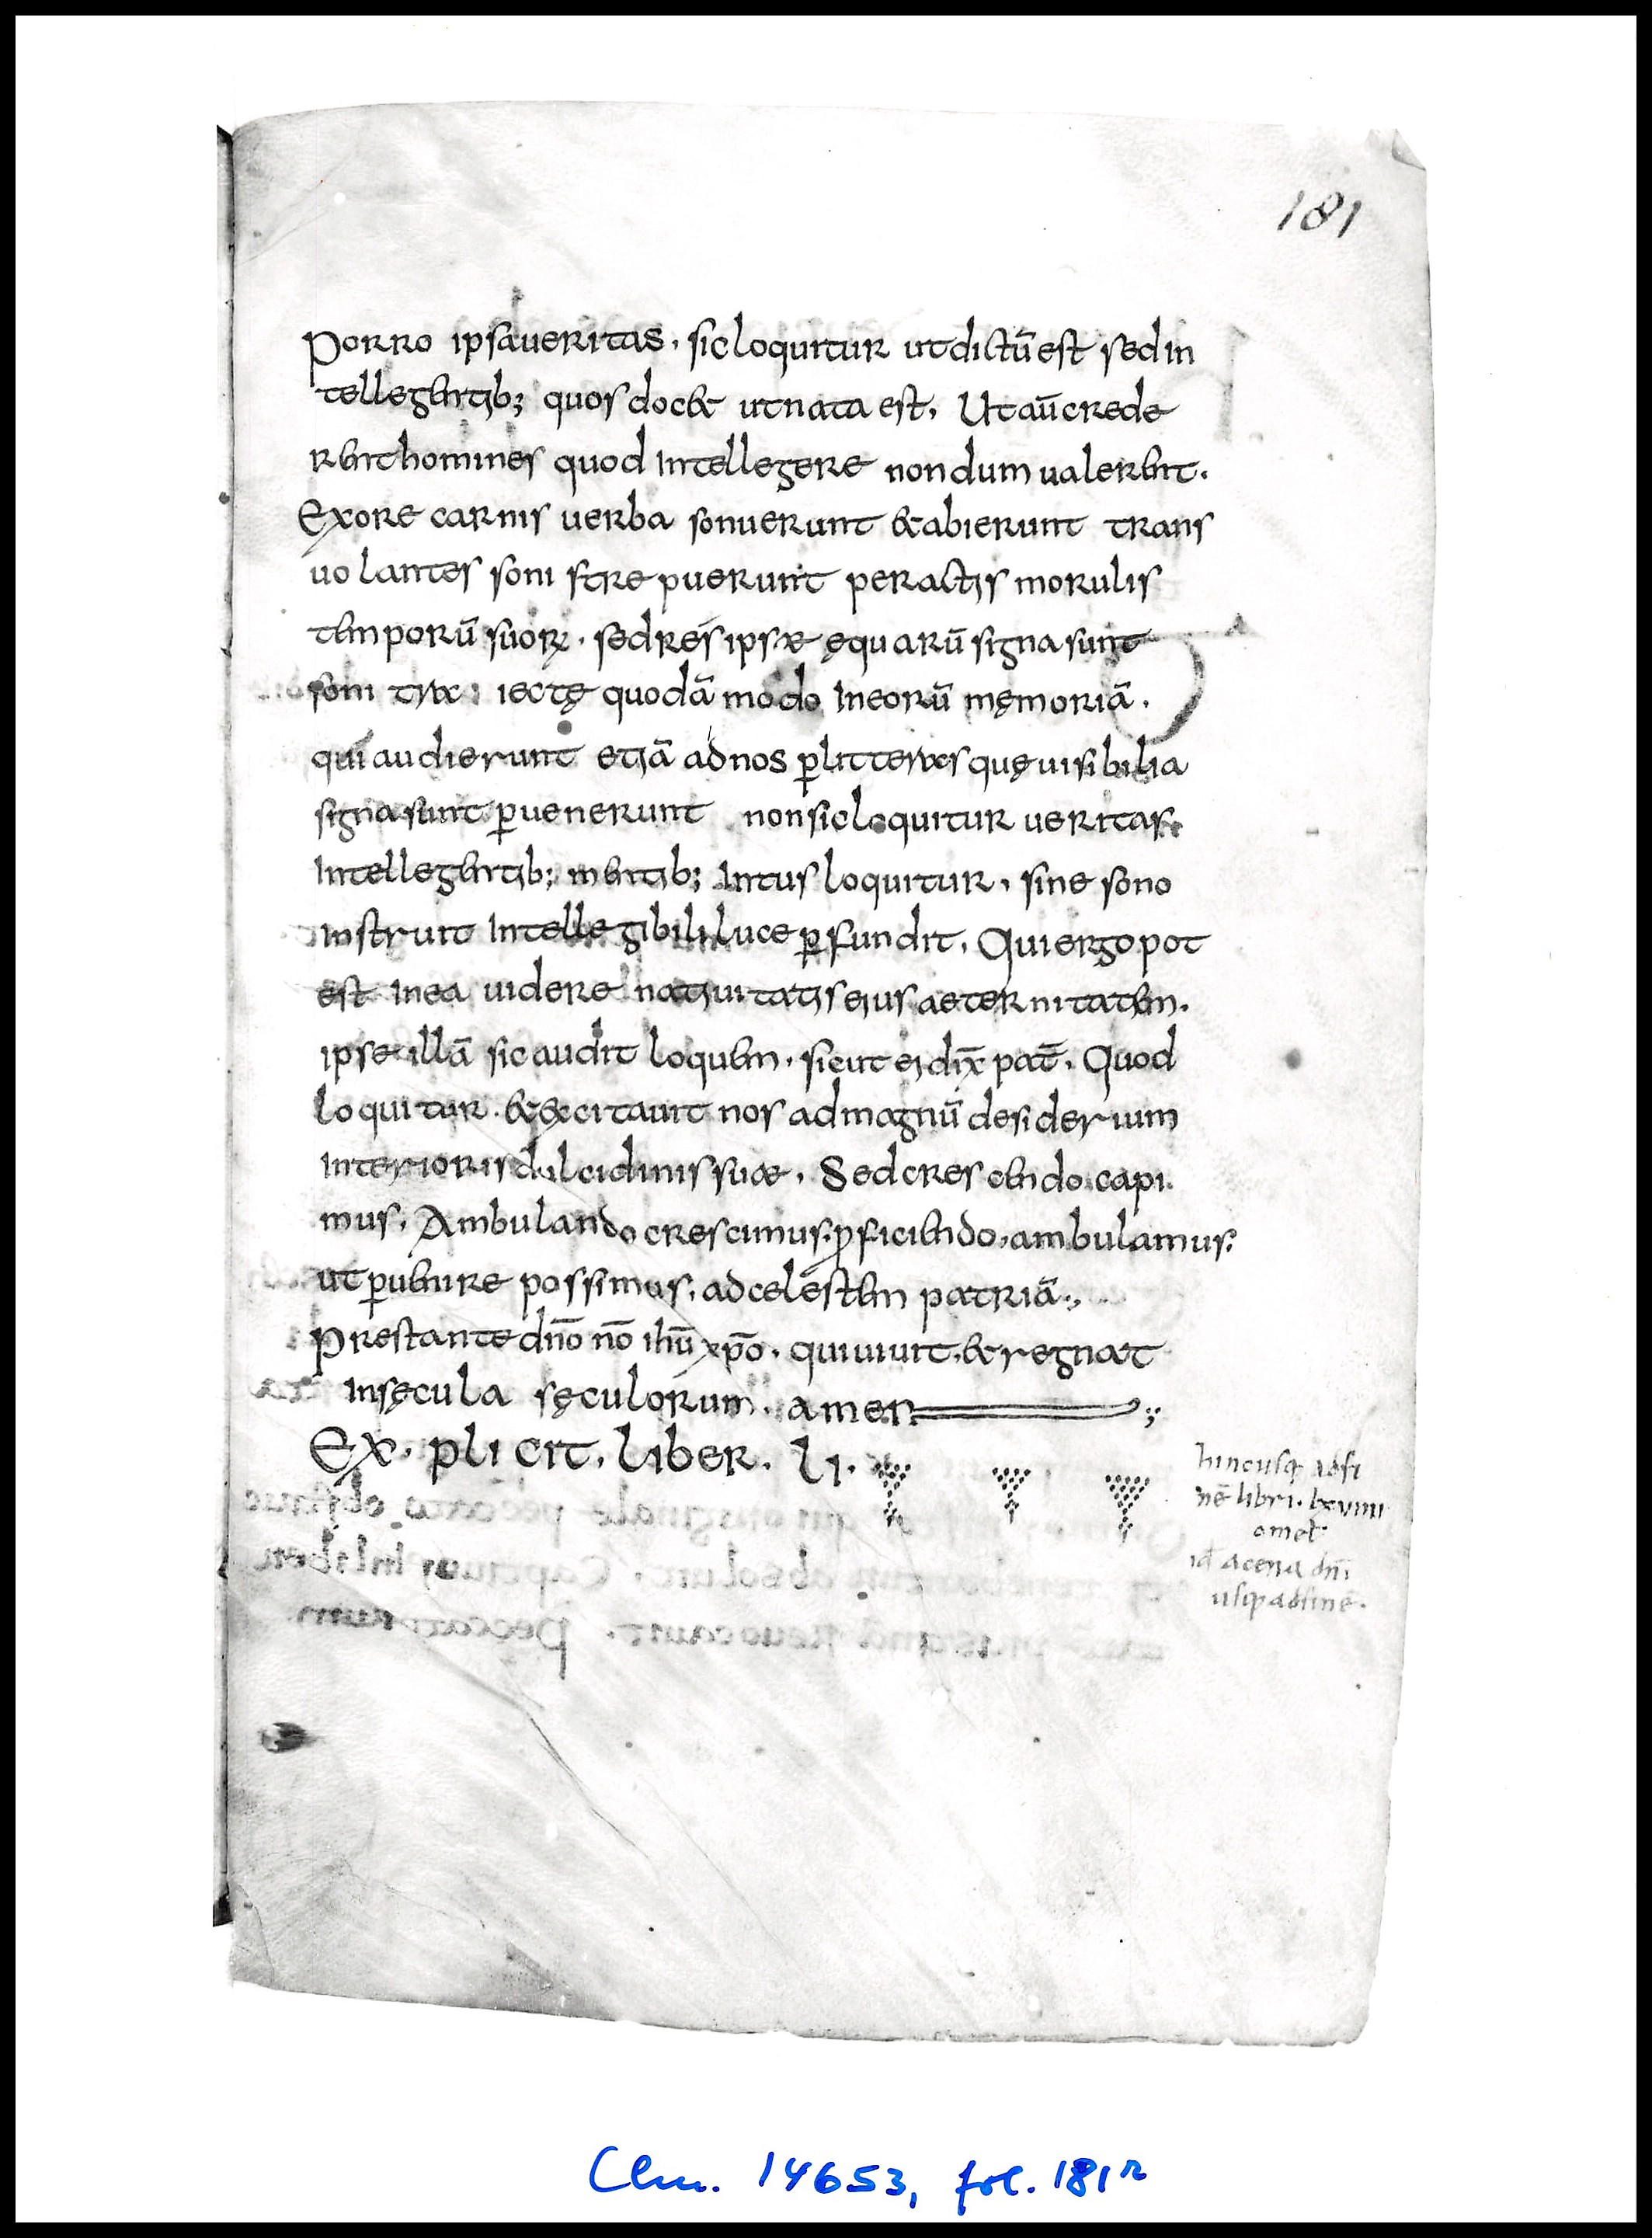 181
porro ipsa ueritas, sic loquitur ut dictū est sed in
tellegentib; quos docet ut nata est, Ut aū crede
rent homines quod intellegere nondum ualerent.
Ex ore carnis uerba sonuerunt & abierunt trans
uolantes soni strepuerunt peractis morulis
temporū suoꝝ. sed res ipsæ ę quarū signa sunt
soni traiectę quodā modo in eorū męmoriā.
qui audierunt etiā ad nos ꝑ litteras quę uisibilia
signa sunt ꝑuenerunt non sic loquitur ueritas
Intellegentib; mentib; Intus loquitur, sine sono
instruit intellegibili luce ꝑfundit, Qui ergo pot
est in ea uidere natiuitatis eius aeternitatem.
ipse illā sic audit loquem. sicut ei dix̄ pat̄. Quod
loquitur. & excitauit nos ad magnū desiderium
interioris dulcidinis suæ, Sed crescendo capi
mus, Ambulando crescimus; ꝓficiendo, ambulamus;
ut ꝑuenire possimus, ad celestem patriā.,
Prestante dn̄o nō ihū xp̄o. qui uiuit, & regnat
in sęcula sęculorum. amen ;
Ex. plicit. liber. li.
hinc usq; ad fi
nē libri. lxviiii
omet̄
id̄ a cena dn̄i
usq; ad finē.
Clm. 14653, fol. 181r